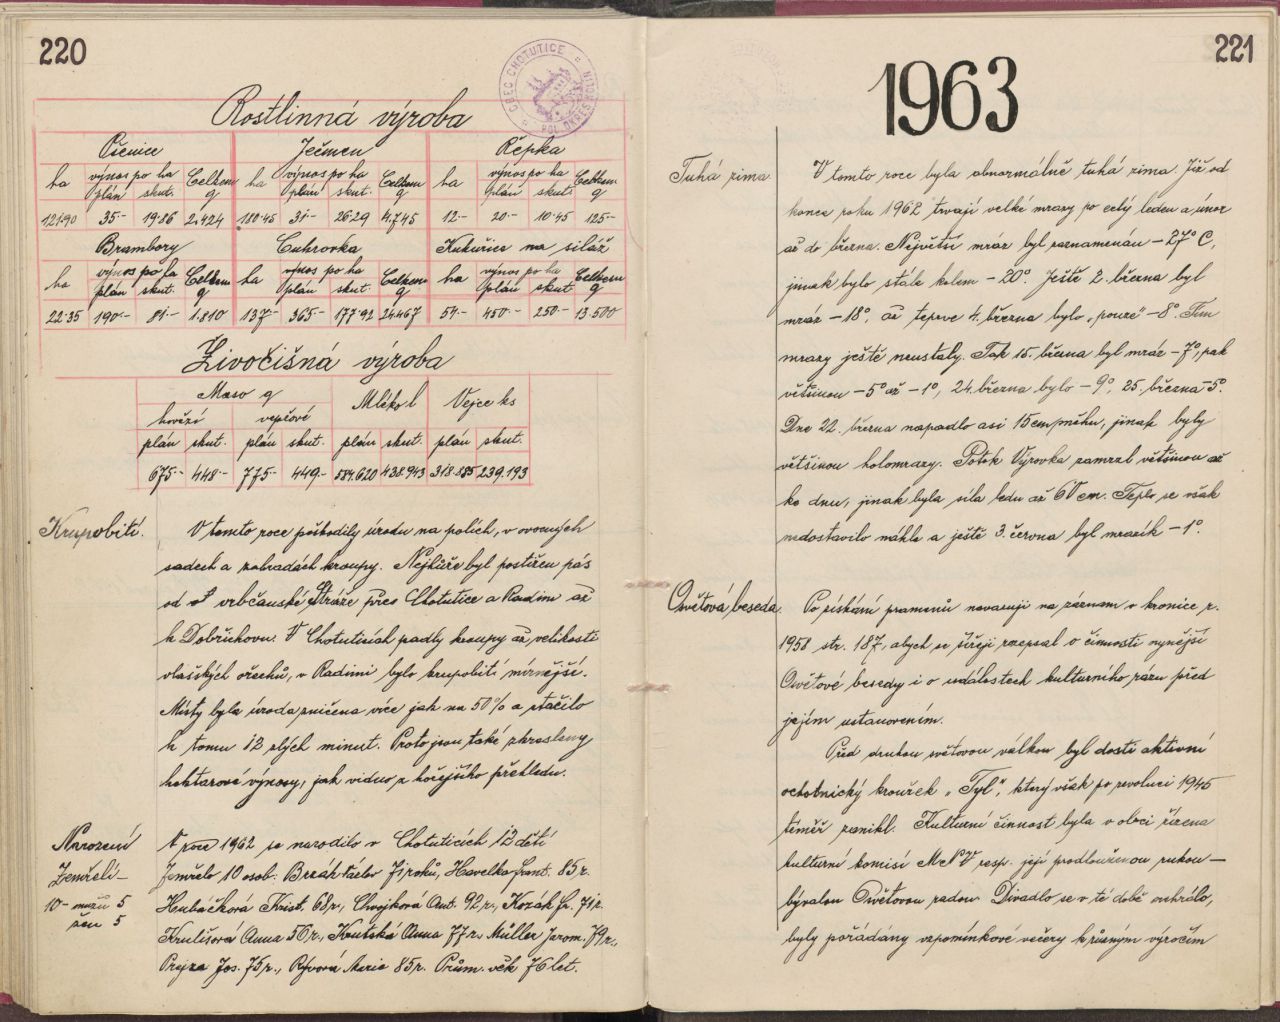 220
OBEC CHOTUTICE
POL. OKRES KOLÍN
Rostlinná výroba
Pšenice Ječmen Řepka
ha výnos po ha Celkem ha výnos po ha Celkem ha výnos po ha Celkem
plán skut. q plán skut. q plán skut. q
121·90 35·- 19·86 2.424 180·45 31·- 26·29 4.745 12·- 20·- 10·45 125·-
Brambory Cukrovka Kukuřice na siláž
ha výnos po ha Celkem ha výnos po ha Celkem ha výnos po ha Celkem
plán skut. q plán skut. q plán skut. q
22·35 190·- 81·- 1.810 137·- 365·- 177·92 24.467 54·- 450·- 250·- 13.500
Živočišná výroba
Maso q Mléko l Vejce ks
hovězí vepřové
plán skut. plán skut. plán skut. plán skut.
675·- 448·- 775·- 449·- 584.620 438.943 318.885 239.193
Krupobití.
V tomto roce poškodily úrodu na polích, v ovocných
sadech a zahradách kroupy. Nejhůře byl postižen pás
od vrbčanské Stráže přes Chotutice a Radim až
k Dobřichovu. V Chotuticích padly kroupy až velikosti
vlašských ořechů, v Radimi bylo krupobití mírnější.
Místy byla úroda zničena více jak na 50% a stačilo
k tomu 12 zlých minut. Proto jsou také zkresleny
hektarové výnosy, jak vidno z hořejšího přehledu.
Narození
Zemřelí-
10- mužů 5
žen 5
V roce 1962 se narodilo v Chotuticích 12 dětí
Zemřelo 10 osob: Václav Jirků, Havelka Frant. 85 r.
Hubáčková Krist. 68 r., Chvojková Ant. 92 r., Kozák Fr. 71 r.
Krulišová Anna 56 r., Krutská Anna 77 r., Müller Jarom. 79 r.,
Prejza Jos. 75 r., Rývová Marie 85 r. Prům. věk 76 let.
221
1963
Tuhá zima
V tomto roce byla abnormálně tuhá zima. Již od
konce roku 1962 trvají velké mrazy po celý leden a únor
až do března. Největší mráz byl zaznamenán - 27° C,
jinak bylo stále kolem - 20°. Ještě 2. března byl
mráz - 18°, až teprve 4. března bylo „pouze" - 8°. Tím
mrazy ještě neustaly. Tak 15. března byl mráz - 7°, pak
většinou - 5° až - 1°, 24. března bylo - 9°, 25. března - 5°.
Dne 22. března napadlo asi 15 cm sněhu, jinak byly
většinou holomrazy. Potok Výrovka zamrzl většinou až
ke dnu, jinak byla síla ledu až 60 cm. Teplo se však
nedostavilo náhle a ještě 3. června byl mrazík - 1°.
Osvětová beseda.
Po získání pramenů navazuji na záznam v kronice z r.
1958 str. 187, abych se šířeji rozepsal o činnosti nynější
Osvětové besedy i o událostech kulturního rázu před
jejím ustanovením.
Před druhou světovou válkou byl dosti aktivní
ochotnický kroužek „Tyl", který však po revoluci 1945
téměř zanikl. Kulturní činnost byla v obci řízena
kulturní komisí MNV resp. její prodlouženou rukou -
bývalou Osvětovou radou. Divadlo se v té době nehrálo,
byly pořádány vzpomínkové večery k různým výročím